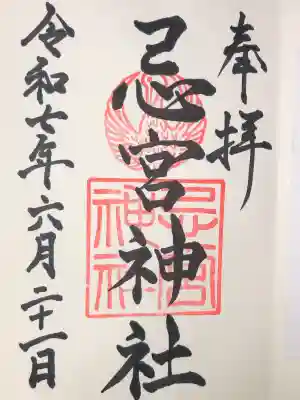 奉拝
忌宮神社
忌宮神社
令和七年六月二十一日